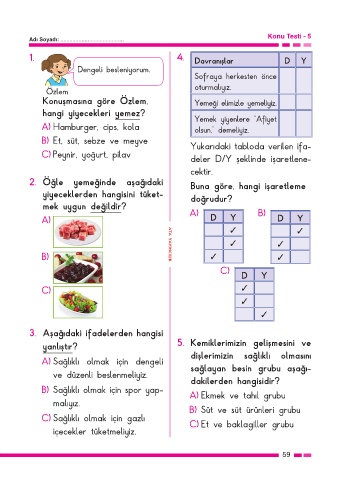 Adı Soyadı: ................................
Konu Testi - 5
1.
Dengeli besleniyorum.
Özlem
Konuşmasına göre Özlem,
hangi yiyecekleri yemez?
A) Hamburger, cips, kola
B) Et, süt, sebze ve meyve
C) Peynir, yoğurt, pilav
2. Öğle yemeğinde aşağıdaki
yiyeceklerden hangisini tüket-
mek uygun değildir?
A)
B)
C)
3. Aşağıdaki ifadelerden hangisi
yanlıştır?
A) Sağlıklı olmak için dengeli
ve düzenli beslenmeliyiz.
B) Sağlıklı olmak için spor yap-
malıyız.
C) Sağlıklı olmak için gazlı
içecekler tüketmeliyiz.
4.
Davranışlar D Y
Sofraya herkesten önce
oturmalıyız.
Yemeği elimizle yemeliyiz.
Yemek yiyenlere "Afiyet
olsun." demeliyiz.
Yukarıdaki tabloda verilen ifa-
deler D/Y şeklinde işaretlene-
cektir.
Buna göre, hangi işaretleme
doğrudur?
A) D Y B) D Y
✓ ✓
✓ ✓
✓ ✓
C) D Y
✓
✓
✓
5. Kemiklerimizin gelişmesini ve
dişlerimizin sağlıklı olmasını
sağlayan besin grubu aşağı-
dakilerden hangisidir?
A) Ekmek ve tahıl grubu
B) Süt ve süt ürünleri grubu
C) Et ve baklagiller grubu
59